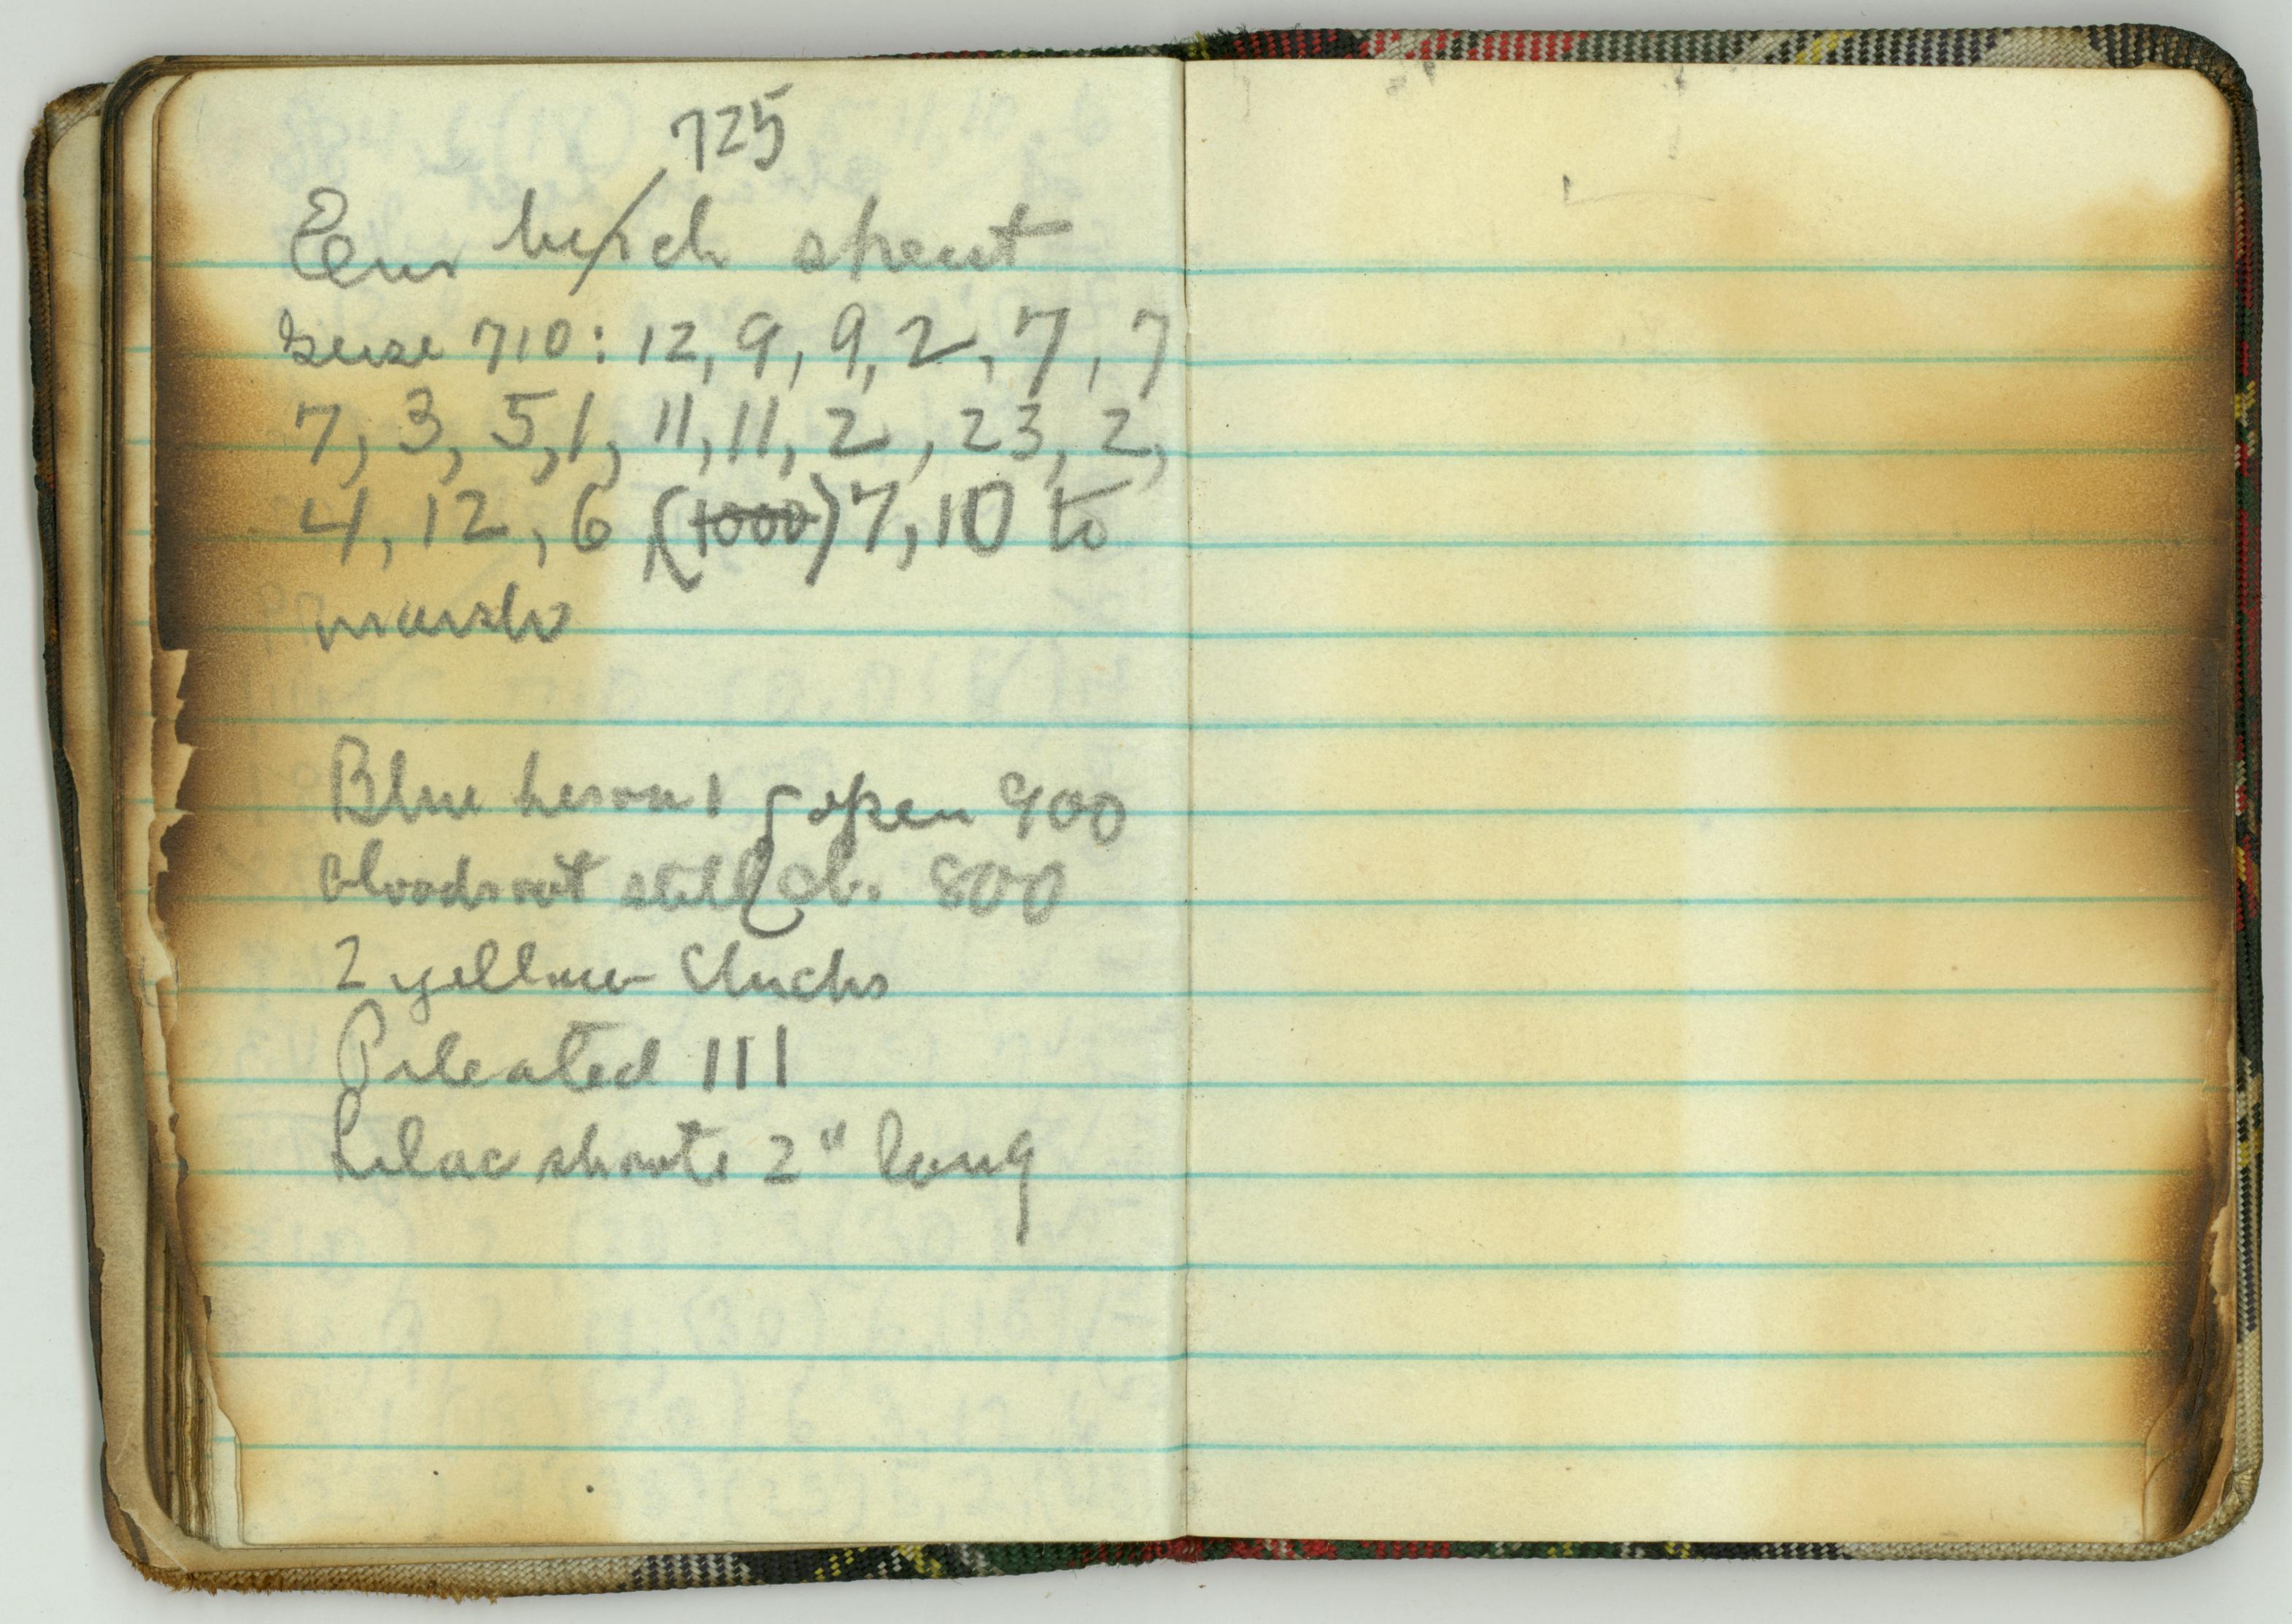 725
Elm birch spent
Geese 710: 12, 9, 9, 2, 7, 7
7, 3, 5, 1, 11, 11, 2, 23, 2,
4, 12, 6 (1000) 7, 10 to
marsh
Blue heron 1 { open 900
bloodroot still { cl. 800
2 yellow
Pileated 111
Lilac shoots 2" long